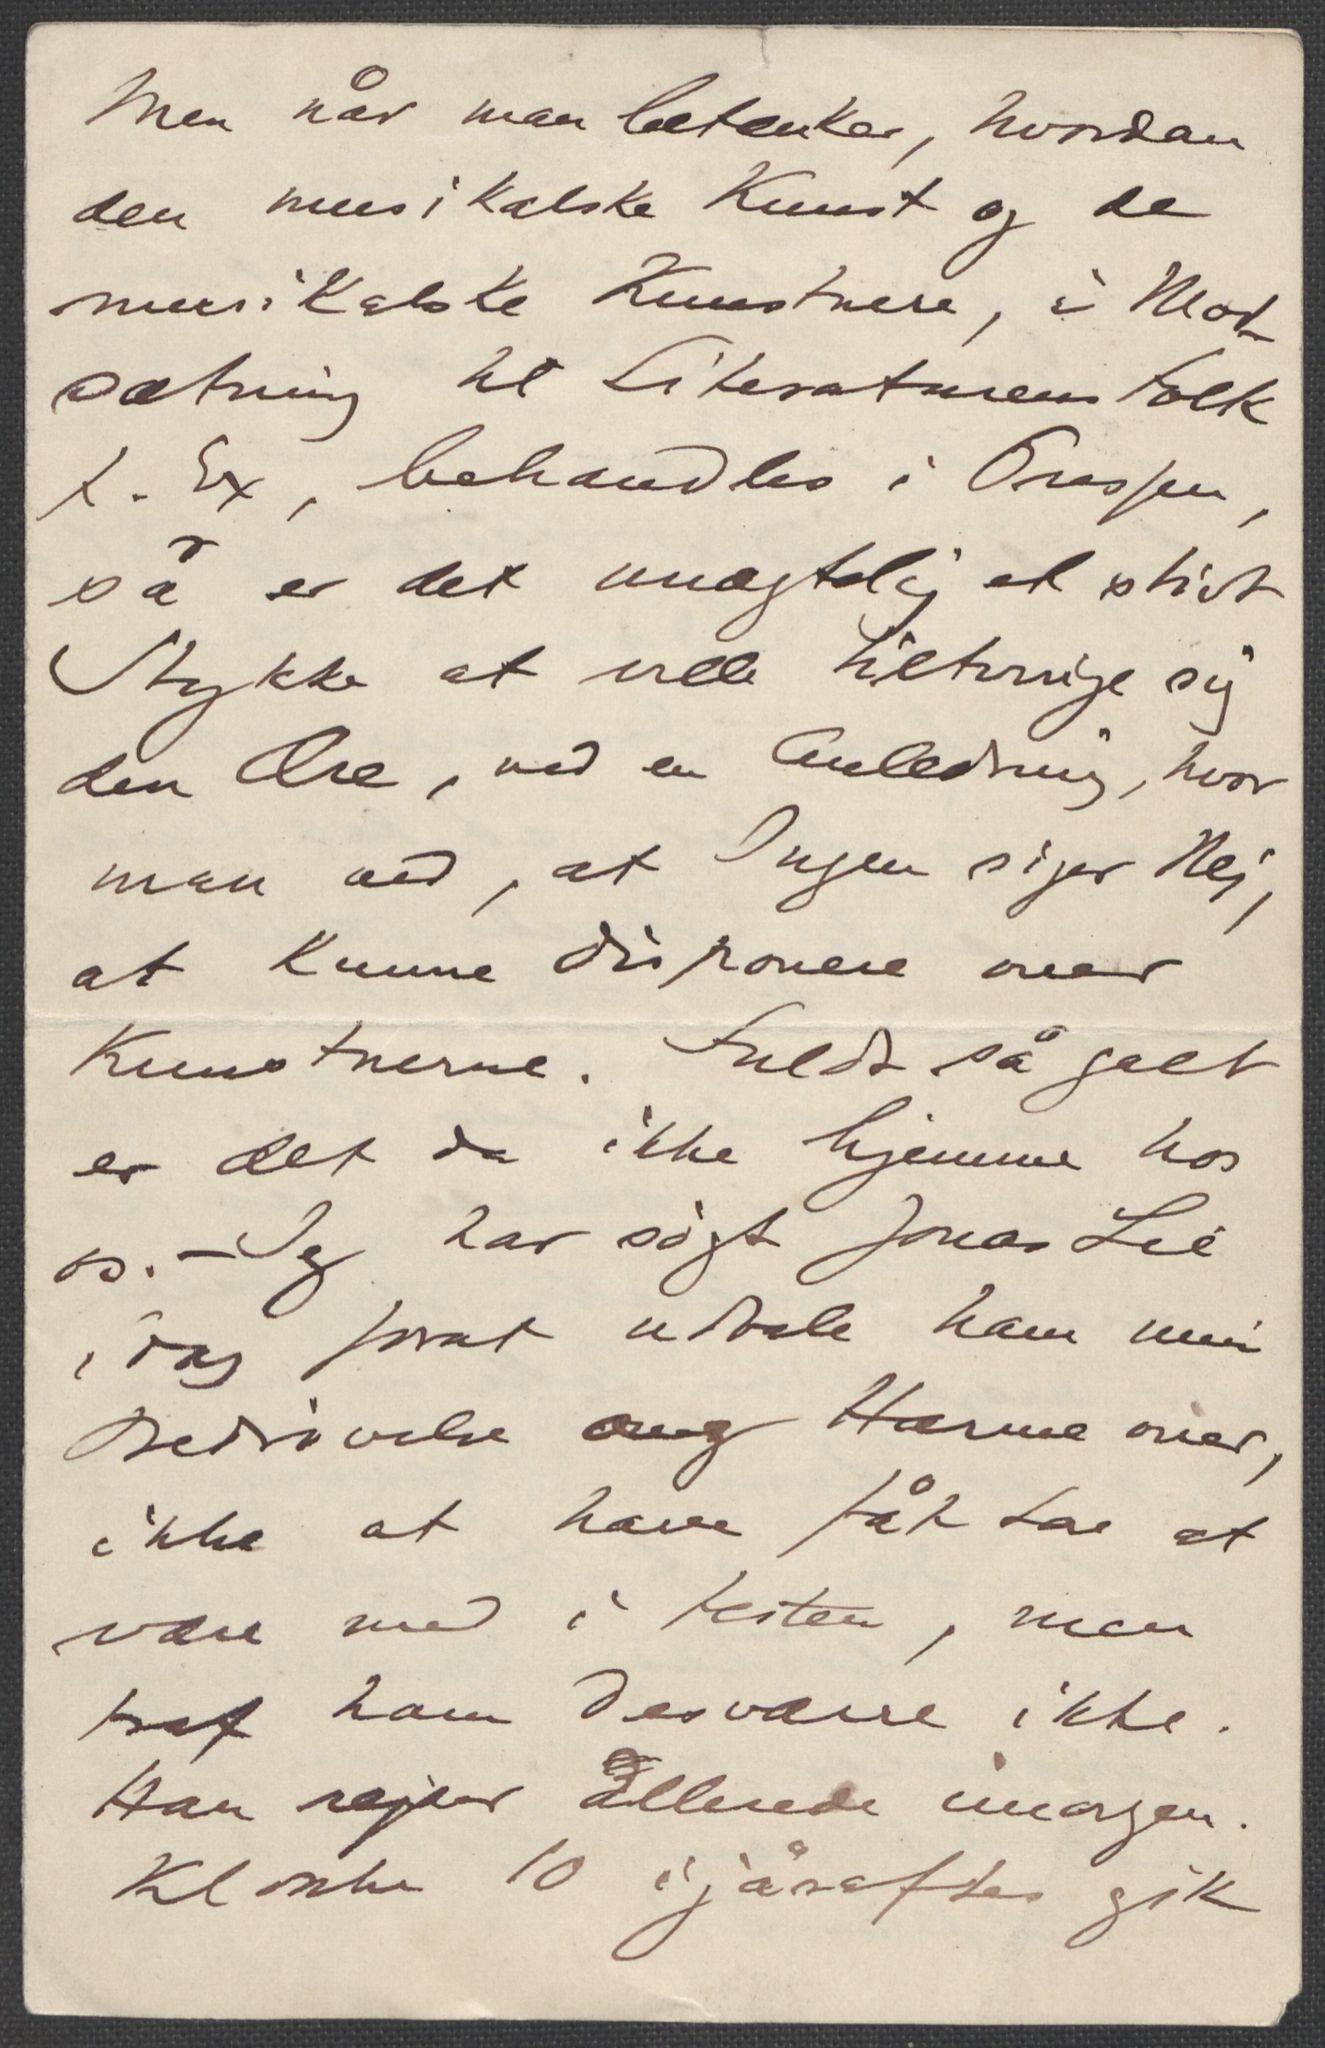 Men når man betænker, hvordan
den musikalske Kunst og de
musikalske Kunstnere, i Mod-
sætning til Literaturens Folk
f. Ex, behandles i Pressen,
så er det unægtelig et stivt
Stykke at ville tiltvinge sig
den Ære, ved en Anledning, hvor
man ved, at Ingen siger Nej,
at kunne disponere over
Kunstnerne. Fuldt så galt
er det da ikke hjemme hos
os. – Jeg har søgt Jonas Lie
idag forat udtale ham min
Bedrøvelse og Harme over,
ikke at have fåt Lov at
være med i Festen, men
traf ham desværre ikke.
Han rejser allerede imorgen.
Klokken 10 igåraftes gik